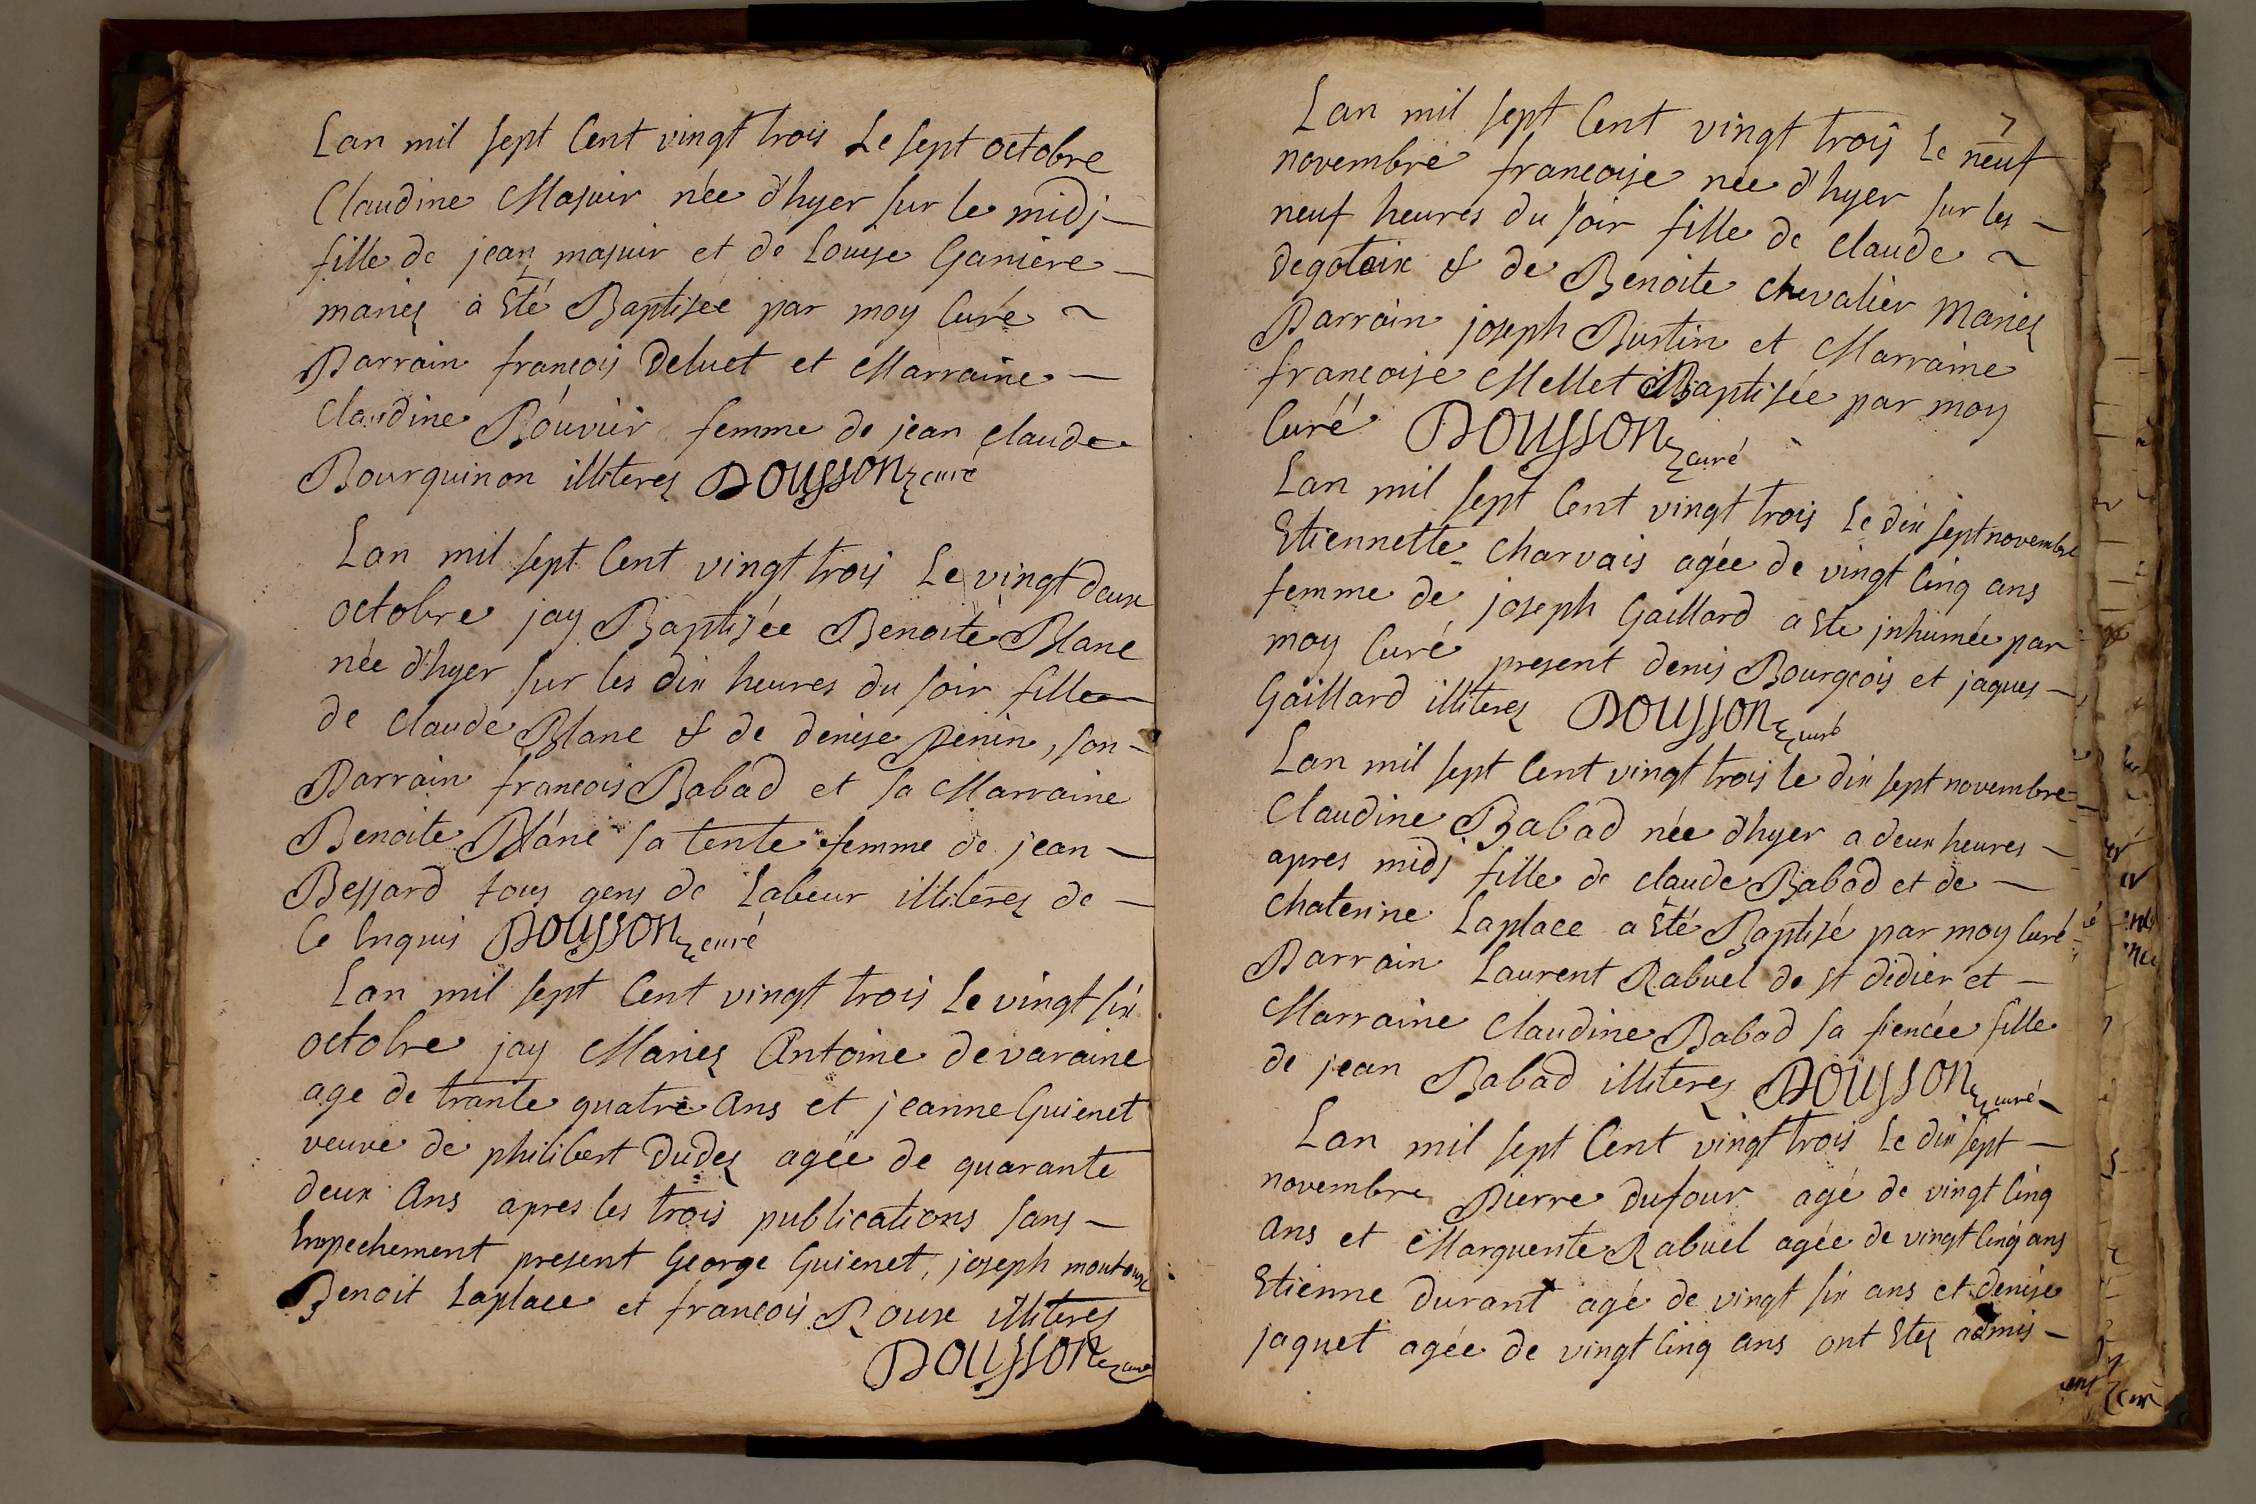 Lan mil sept Cent vingt trois Le sept octobre
Claudine Masuir née d'hyer sur le midj
fille de jean masuir et de Louise Ganiere
mariez a Eté Baptisée par moy Curé ~
Parrain francois Deluet et Marraine
Claudine Bouvier femme de jean claude
Bourquinon illiterez DOUSSON curé
Lan mil sept Cent vingt trois Le vingt deux
octobre jay Baptisée Benoite Blanc
née d'hyer sur les dix heures du soir fille
de claude Blanc & de denise Penin, son
Parrain francois Babad et sa Marraine
Benoite Blanc sa tente femme de jean
Bessard tous gens de Labeur illiterez de
Ce Enquis DOUSSON curé
Lan mil sept Cent vingt trois Le vingt six
octobre jay Mariez Antoine devaraine
age de trante quatre Ans et jeanne Guienet
veuve de philibert Dudez agée de quarante
deux Ans apres les trois publications sans
Empechement present George Guienet, joseph
Benoit Laplace et francois Roux illiteres
DOUSSON curé
7
Lan mil sept Cent vingt trois Le neuf
novembre francoise née d'hyer sur les
neuf heures du soir fille de claude ~
degotaix & de Benoite chevalier Mariez
Parrain joseph Burtin et Marraine
francoise Mellet Baptisée par moy
Curé DOUSSON curé
Lan mil sept Cent vingt trois Le dix sept novembre
Etiennette charvais agée de vingt Cinq ans
femme de joseph Gaillard a Ete jnhumée par
moy Curé present denis Bourgeois et jaques
Gaillard illiterez DOUSSON curé
Lan mil sept Cent vingt trois le dix sept novembre
Claudine Babad née d'hyer a deux heures
apres midj fille de claude Babad et de
Chaterine Laplace a Eté Baptisé par moy Curé
Parrain Laurent Rabuel de st didier et
Marraine Claudine Babad sa fiencée fille
de jean Babad illiterez DOUSSON curé
Lan mil sept Cent vingt trois Le dix sept
novembre Pierre dufour agé de vingt Cinq
ans et Marguerite Rabuel agée de vingt Cinq ans
Etienne durant agé de vingt six ans et denise
jaquet agée de vingt Cinq ans ont Etez admis